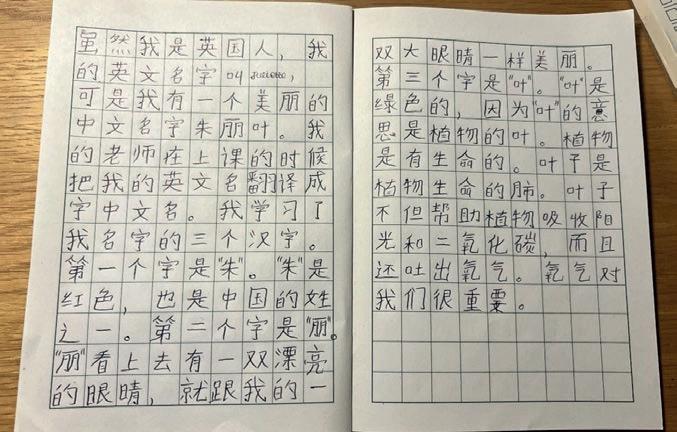 虽然我是英国人，我
的英文名字叫
可是我有一个美丽的
中文名字朱丽叶。我
的老师在上课的时候
把我的英文名翻译成
字中文名。我学习了
我名字的三个汉字。
第一个字是"朱"。"朱"是
红色，也是中国的姓
之一。第二个字是"丽"。
"丽"看上去有一双漂亮
的眼睛，就跟我的一
双大眼睛一样美丽。
第三个字是"叶"。"叶"是
绿色的，因为"叶"的意
思是植物的叶。植物
是有生命的。叶子是
植物生命的肺。叶子
不但帮助植物吸收阳
光和二氧化碳，而且
还吐出氧气。氧气对
我们很重要。